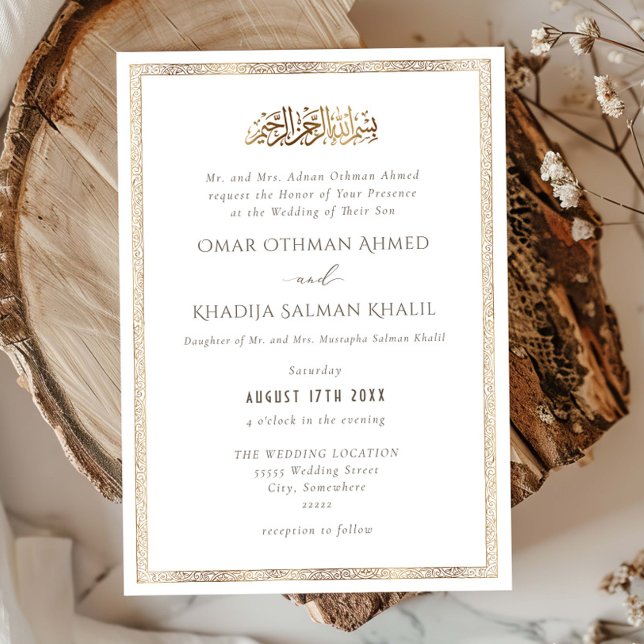 بسم الله الرحمن الرحيم
Mr. and Mrs. Adnan Othman Ahmed
request the Honor of Your Presence
at the Wedding of Their Son
Omar Othman Ahmed
and
Khadija Salman Khalil
Daughter of Mr. and Mrs. Mustapha Salman Khalil
Saturday
AUGUST 17TH 20XX
4 o'clock in the evening
THE WEDDING LOCATION
55555 Wedding Street
City, Somewhere
22222
reception to follow